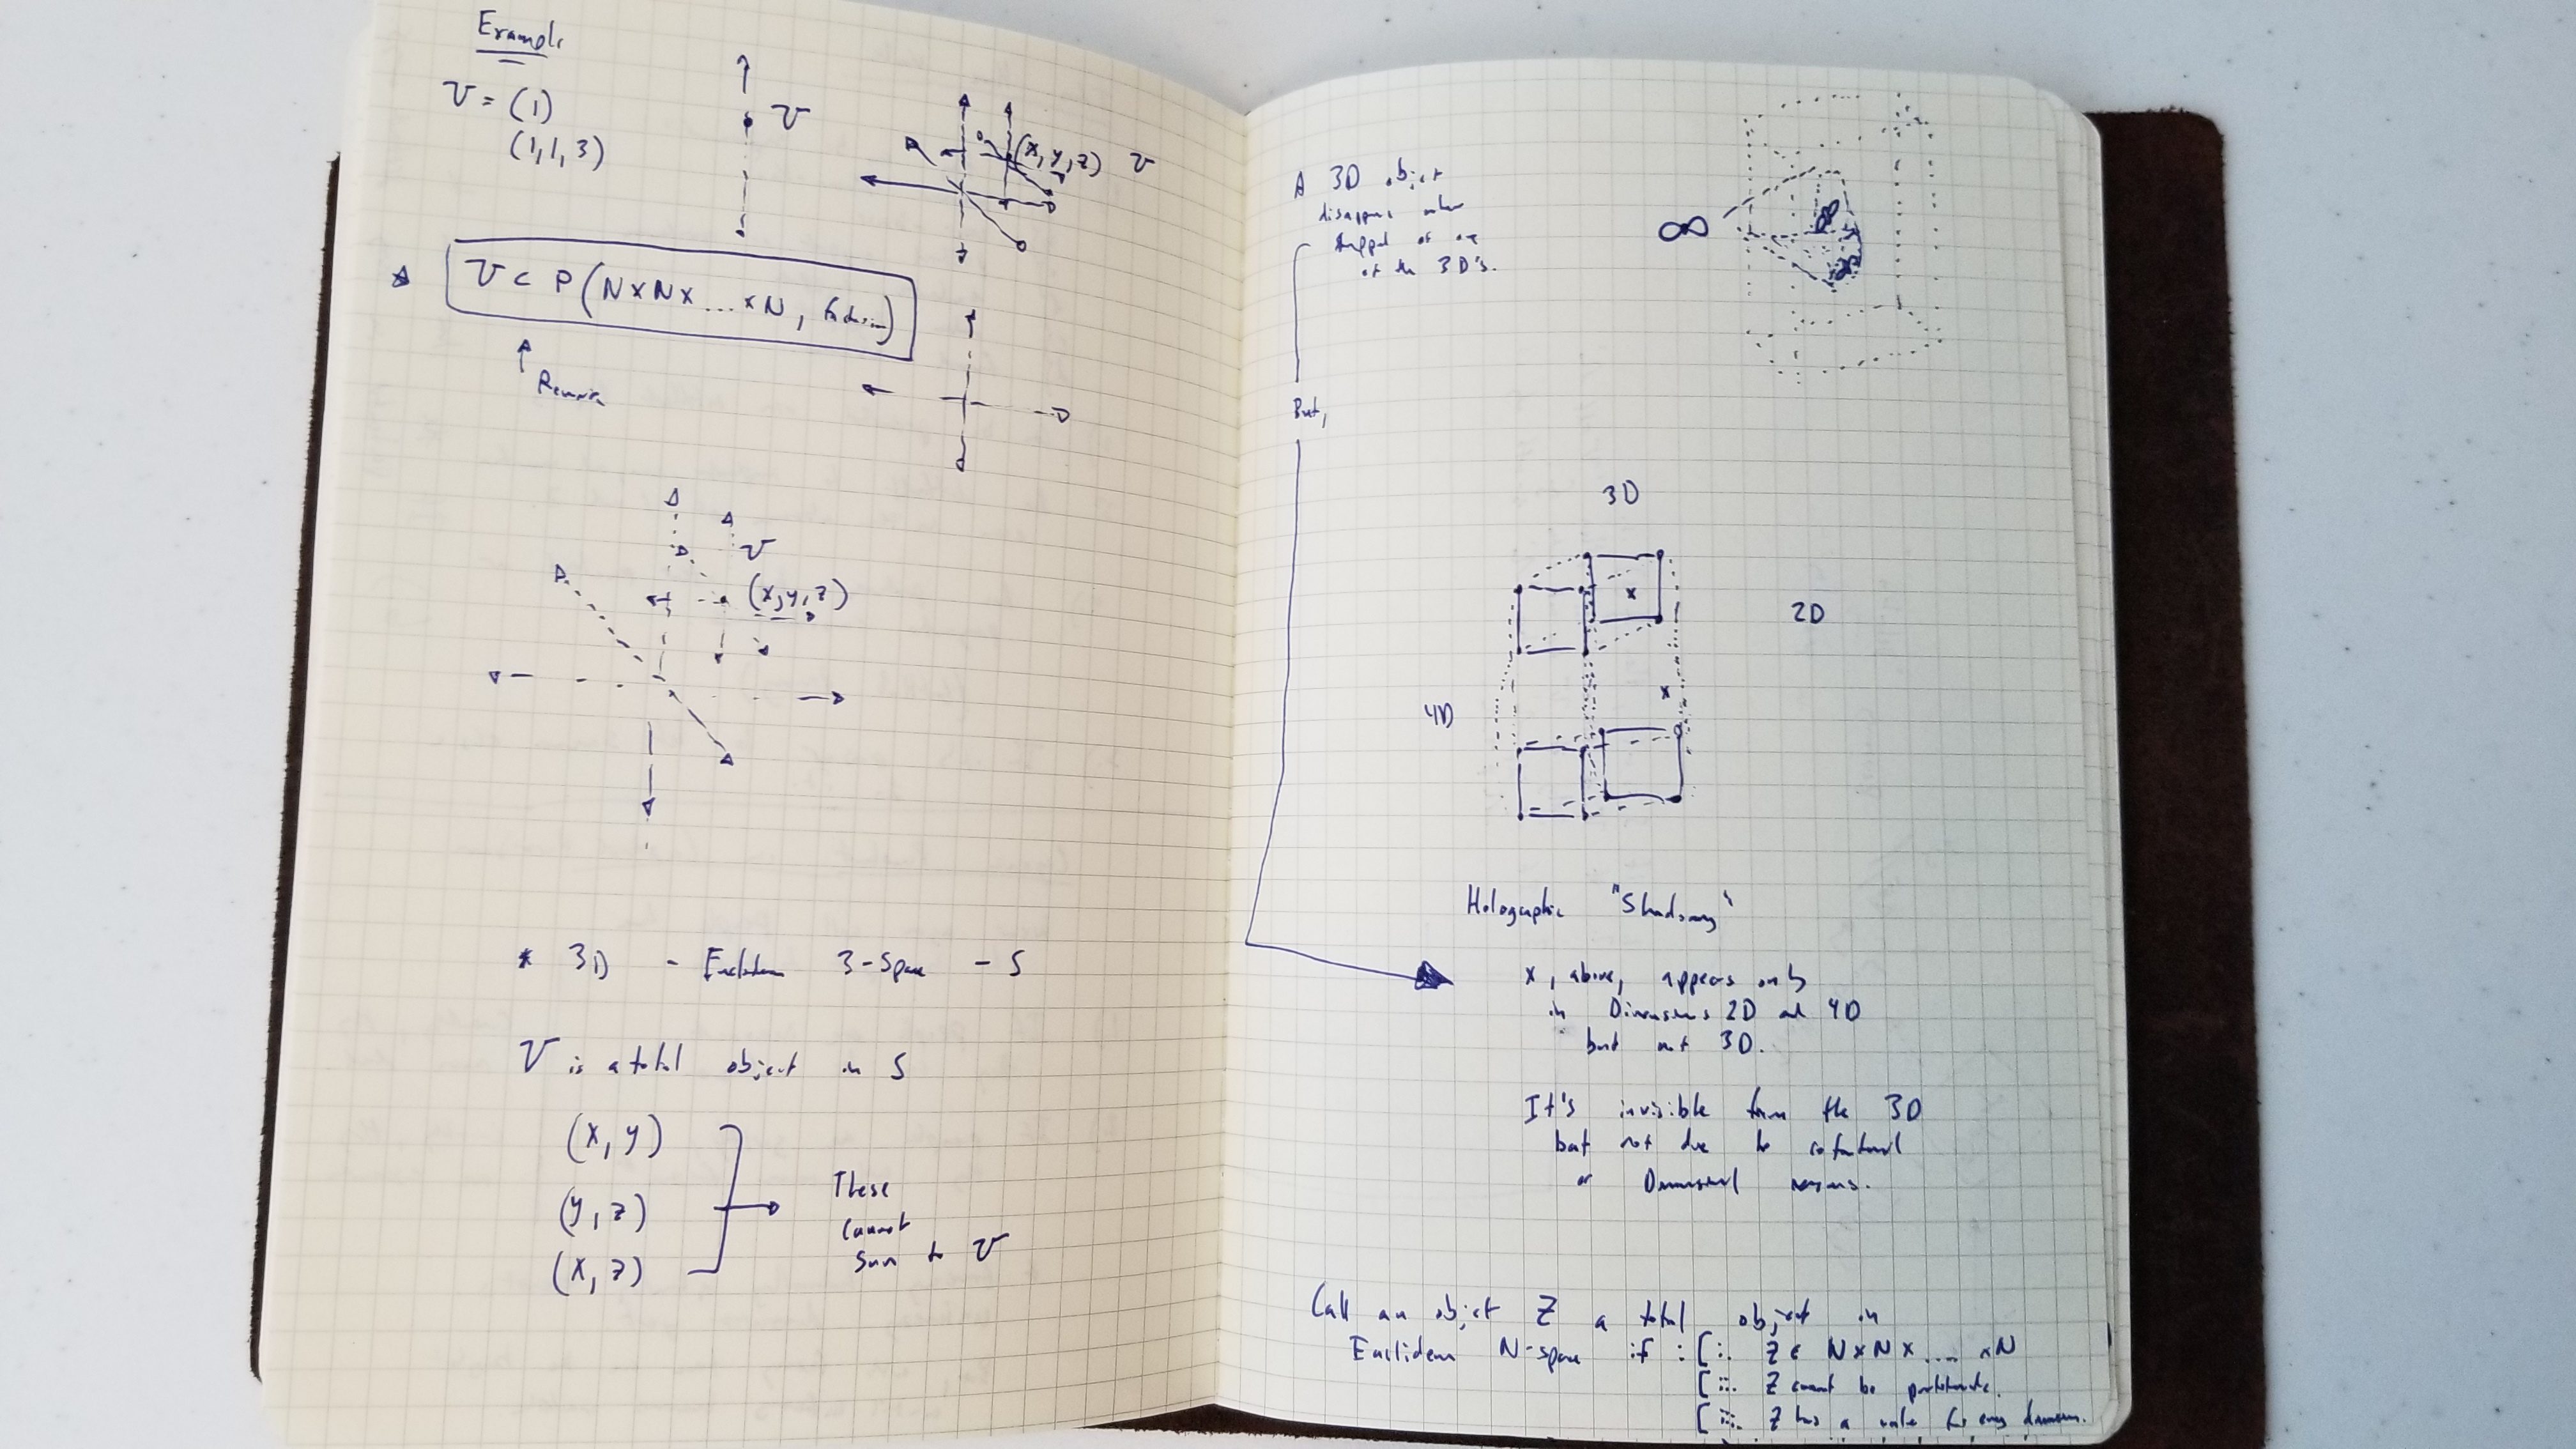 Example
V = (1)
(1,1,3)
V
(x, y, z) V
V ⊂ P(N×N×...×N, )
V
(x,y,z)
* 3D - Euclidean 3-Space - S
V is a total object in S
(x, y)
(y, z)
(x, z)
These
cannot
sum to V
A 3D object
disappears when
of one
of the 3D's.
But,
∞
∞
∞
3D
x
2D
x
4D
Holographic "Shadowing"
x, above, appears only
in Dimensions 2D and 4D
but not 3D.
It's invisible from the 3D
but not due to rotational
or Dimensional reasons.
Call an object Z a total object in
Euclidean N-space if : [i. Z ∈ N×N×....×N
[ii. Z cannot be
[iii. Z has a value for every dimension.